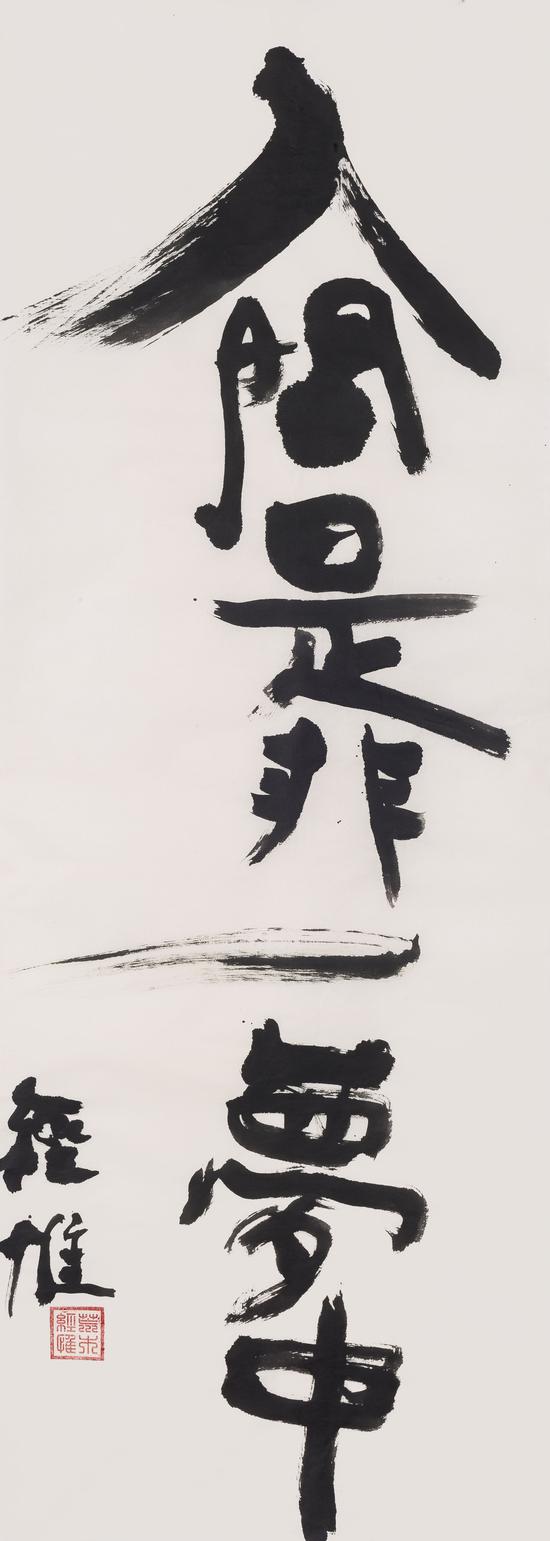 人間是非一夢中
經惟